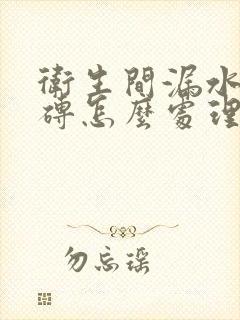 衛生間漏水
磚怎麼處理
勿忘瑶